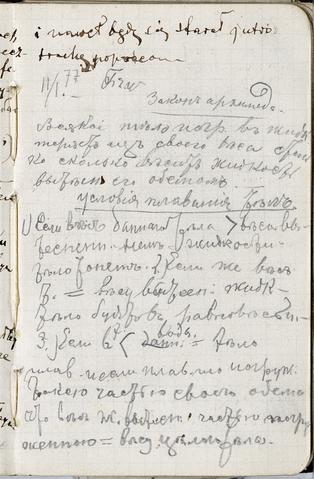 i nawet będę się starał jutro
trochę
11/I 77
Законъ архимеда.
Всякое тѣло погр. въ жидк
теряетъ изъ своего вѣса
ко сколько вѣситъ жидкость
вытѣсн его объемомъ.
условія плаванія тѣлъ.
1) Если вѣсъ даннаго тѣла > вѣса вы-
тѣсненн. имъ жидкости
тѣло тонетъ. 2) Если же вѣсъ
т. = вѣсу вытѣсн: жидк-
тѣло будетъ въ равновѣсіи-
3. Если < тѣло
плав. и если плавл. погруж.
такою частью своего объема
что вѣсъ ж. вытѣсн. частью погру
женною = вѣсу цѣлаго тѣла.